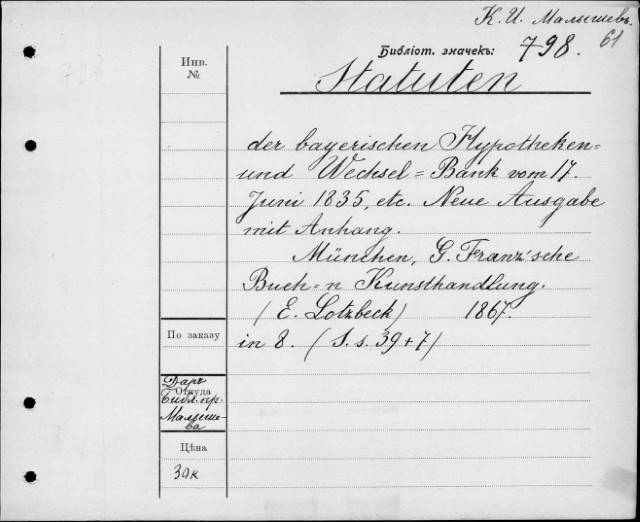 К. И. Малышевъ.
61
Библіот. значекъ: 798.
Инв. №
Statuten
der bayerischen Hypotheken=
und Wechsel = Bank vom 17.
Juni 1835, etc. Neue Ausgabe
mit Anhang.
München, G. Franz'sche
Buch = n Kunsthandlung.
(E. Lotzbeck) 1867.
По заказу
in 8. (S. s. 39 + 7)
Даръ
Откуда
Библ. пр.
Малыше-
ва
Цѣна
30к